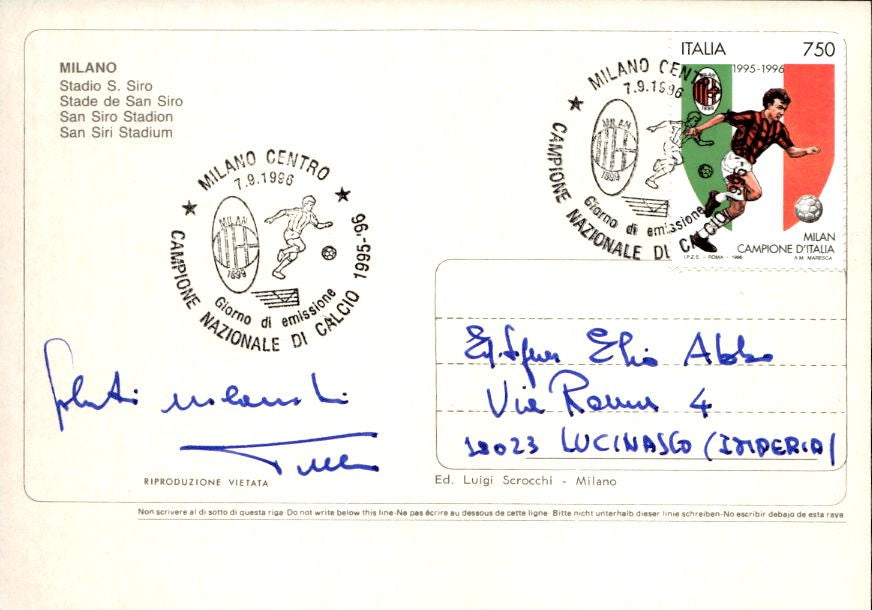 MILANO
Stadio S. Siro
Stade de San Siro
San Siro Stadion
San Siri Stadium
MILANO CENTRO
7.9.1996
MILAN
1899
Giorno di emissione
CAMPIONE NAZIONALE DI CALCIO 1995-'96
MILANO CENTRO
7.9.1996
MILAN
1899
Giorno di emissione
CAMPIONE NAZIONALE DI CALCIO 1995-'96
ITALIA 750
1995-1996
MILAN
1899
MILAN
CAMPIONE D'ITALIA
I.P.Z.S. - ROMA - 1996 A.M. MARESCA
Saluti milanisti
Elio Abbo
Via Roma 4
18023 LUCINASCO (IMPERIA)
RIPRODUZIONE VIETATA
Ed. Luigi Scrocchi - Milano
Non scrivere al di sotto di questa riga-Do not write below this line-Ne pas écrire au dessous de cette ligne-Bitte nicht unterhalb dieser linie schreiben-No escribir debajo de esta raya